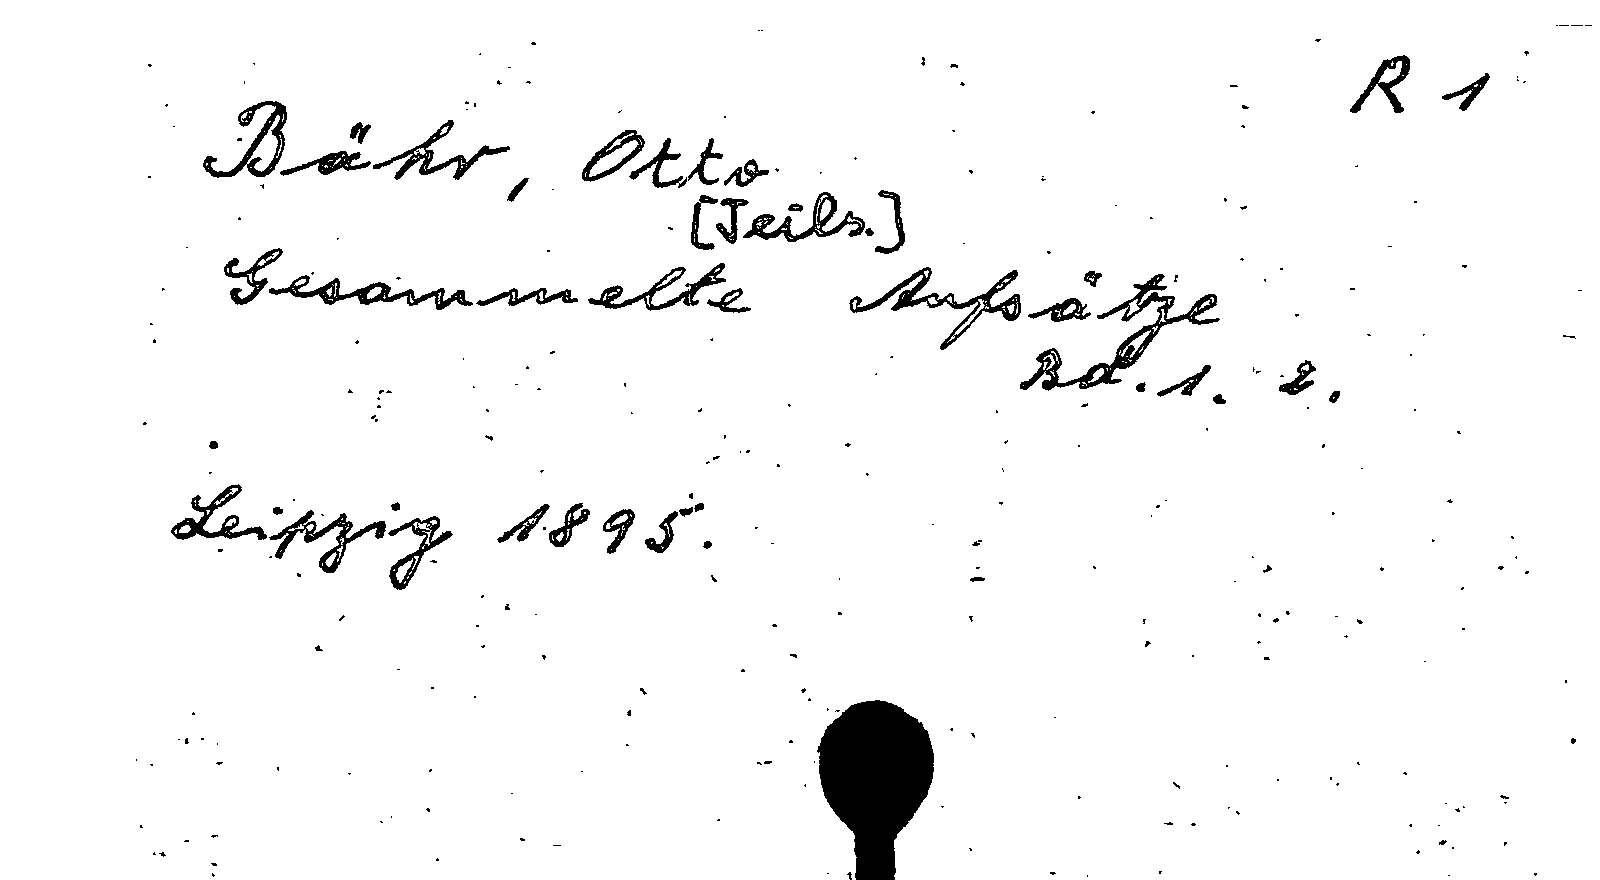 R 1
Bähr, Otto
[Teils.]
Gesammelte Aufsätze
Bd. 1. 2.
Leipzig 1895.